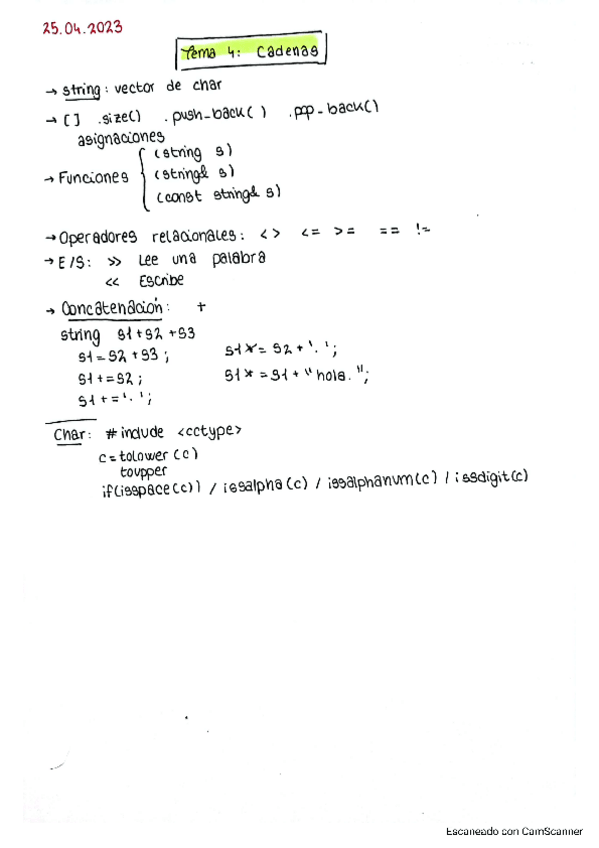 25.04.2023
Tema 4: Cadenas
→ string: vector de char
→ [] .size() .push_back() .pop_back()
asignaciones
→ Funciones { (string s)
(string& s)
(const string& s)
→ Operadores relacionales: < > <= >= == !=
→ E/S: >> Lee una palabra
<< Escribe
→ Concatenación: +
string s1+s2+s3
s1=s2+s3; s1*=s2+'.';
s1+=s2; s1*=s1+"hola.";
s1+='.';
Char: #include <cctype>
c=tolower(c)
toupper
if(isspace(c)) / issalpha(c) / issalphanum(c) / issdigit(c)
Escaneado con CamScanner